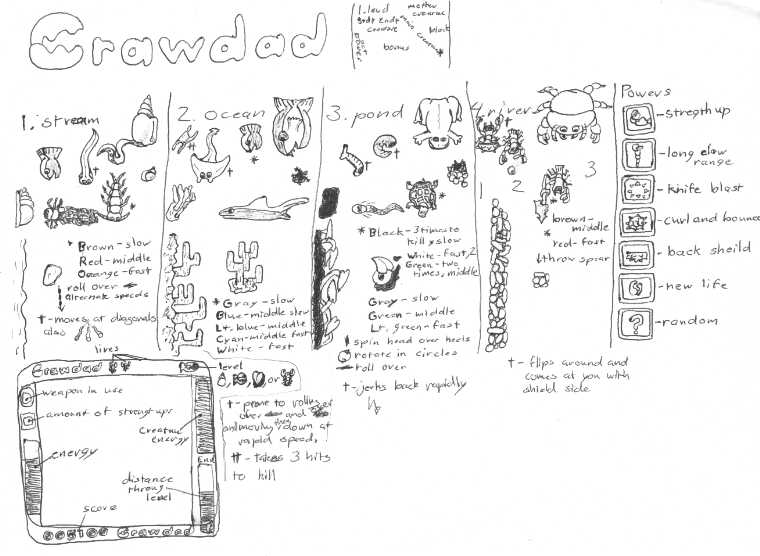 Crawdad
1. level
mother
creature
2ndp
creature
main
creature
black
bonus
power
1. stream
2. ocean
3. pond
4. river
Powers
- stregth up
- long claw
range
- knife blast
- curl and bounce
- back sheild
- new life
- random
* Brown - slow
Red - middle
Orange - fast
roll over
alternate speeds
† - moves at diagonals
also
* Gray - slow
Blue - middle slow
Lt. blue - middle
Cyan - middle fast
White - fast
* Black - 3 times to
kill & slow
White - fast, 2
Green - two
times, middle
Gray - slow
Green - middle
Lt. green - fast
spin head over heels
rotate in circles
roll over
† - jerks back rapidly
1 2 3
brown -
middle
red - fast
‡ throw spear
† - flips around and
comes at you with
shield side
lives
level
or
Crawdad
weapon in use
amount of strengt ups
energy
Creature
energy
End
distance
throug
level
score
Crawdad
† - prone to rolling
over and
down at
rapid speed,
†† - takes 3 hits
to kill